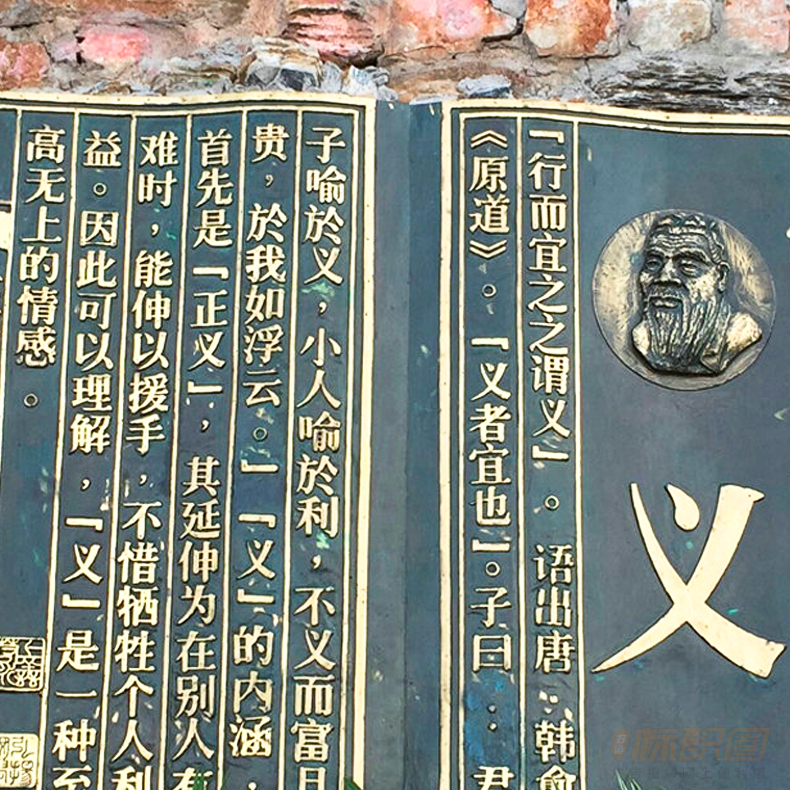 义
「行而宜之之谓义」。语出唐:韩愈
《原道》。「义者宜也」。子曰:君
子喻於义，小人喻於利，不义而富且
贵，於我如浮云。」「义」的内涵，
首先是「正义」，其延伸为在别人有
难时，能伸以援手，不惜牺牲个人利
益。因此可以理解，「义」是一种至
高无上的情感。